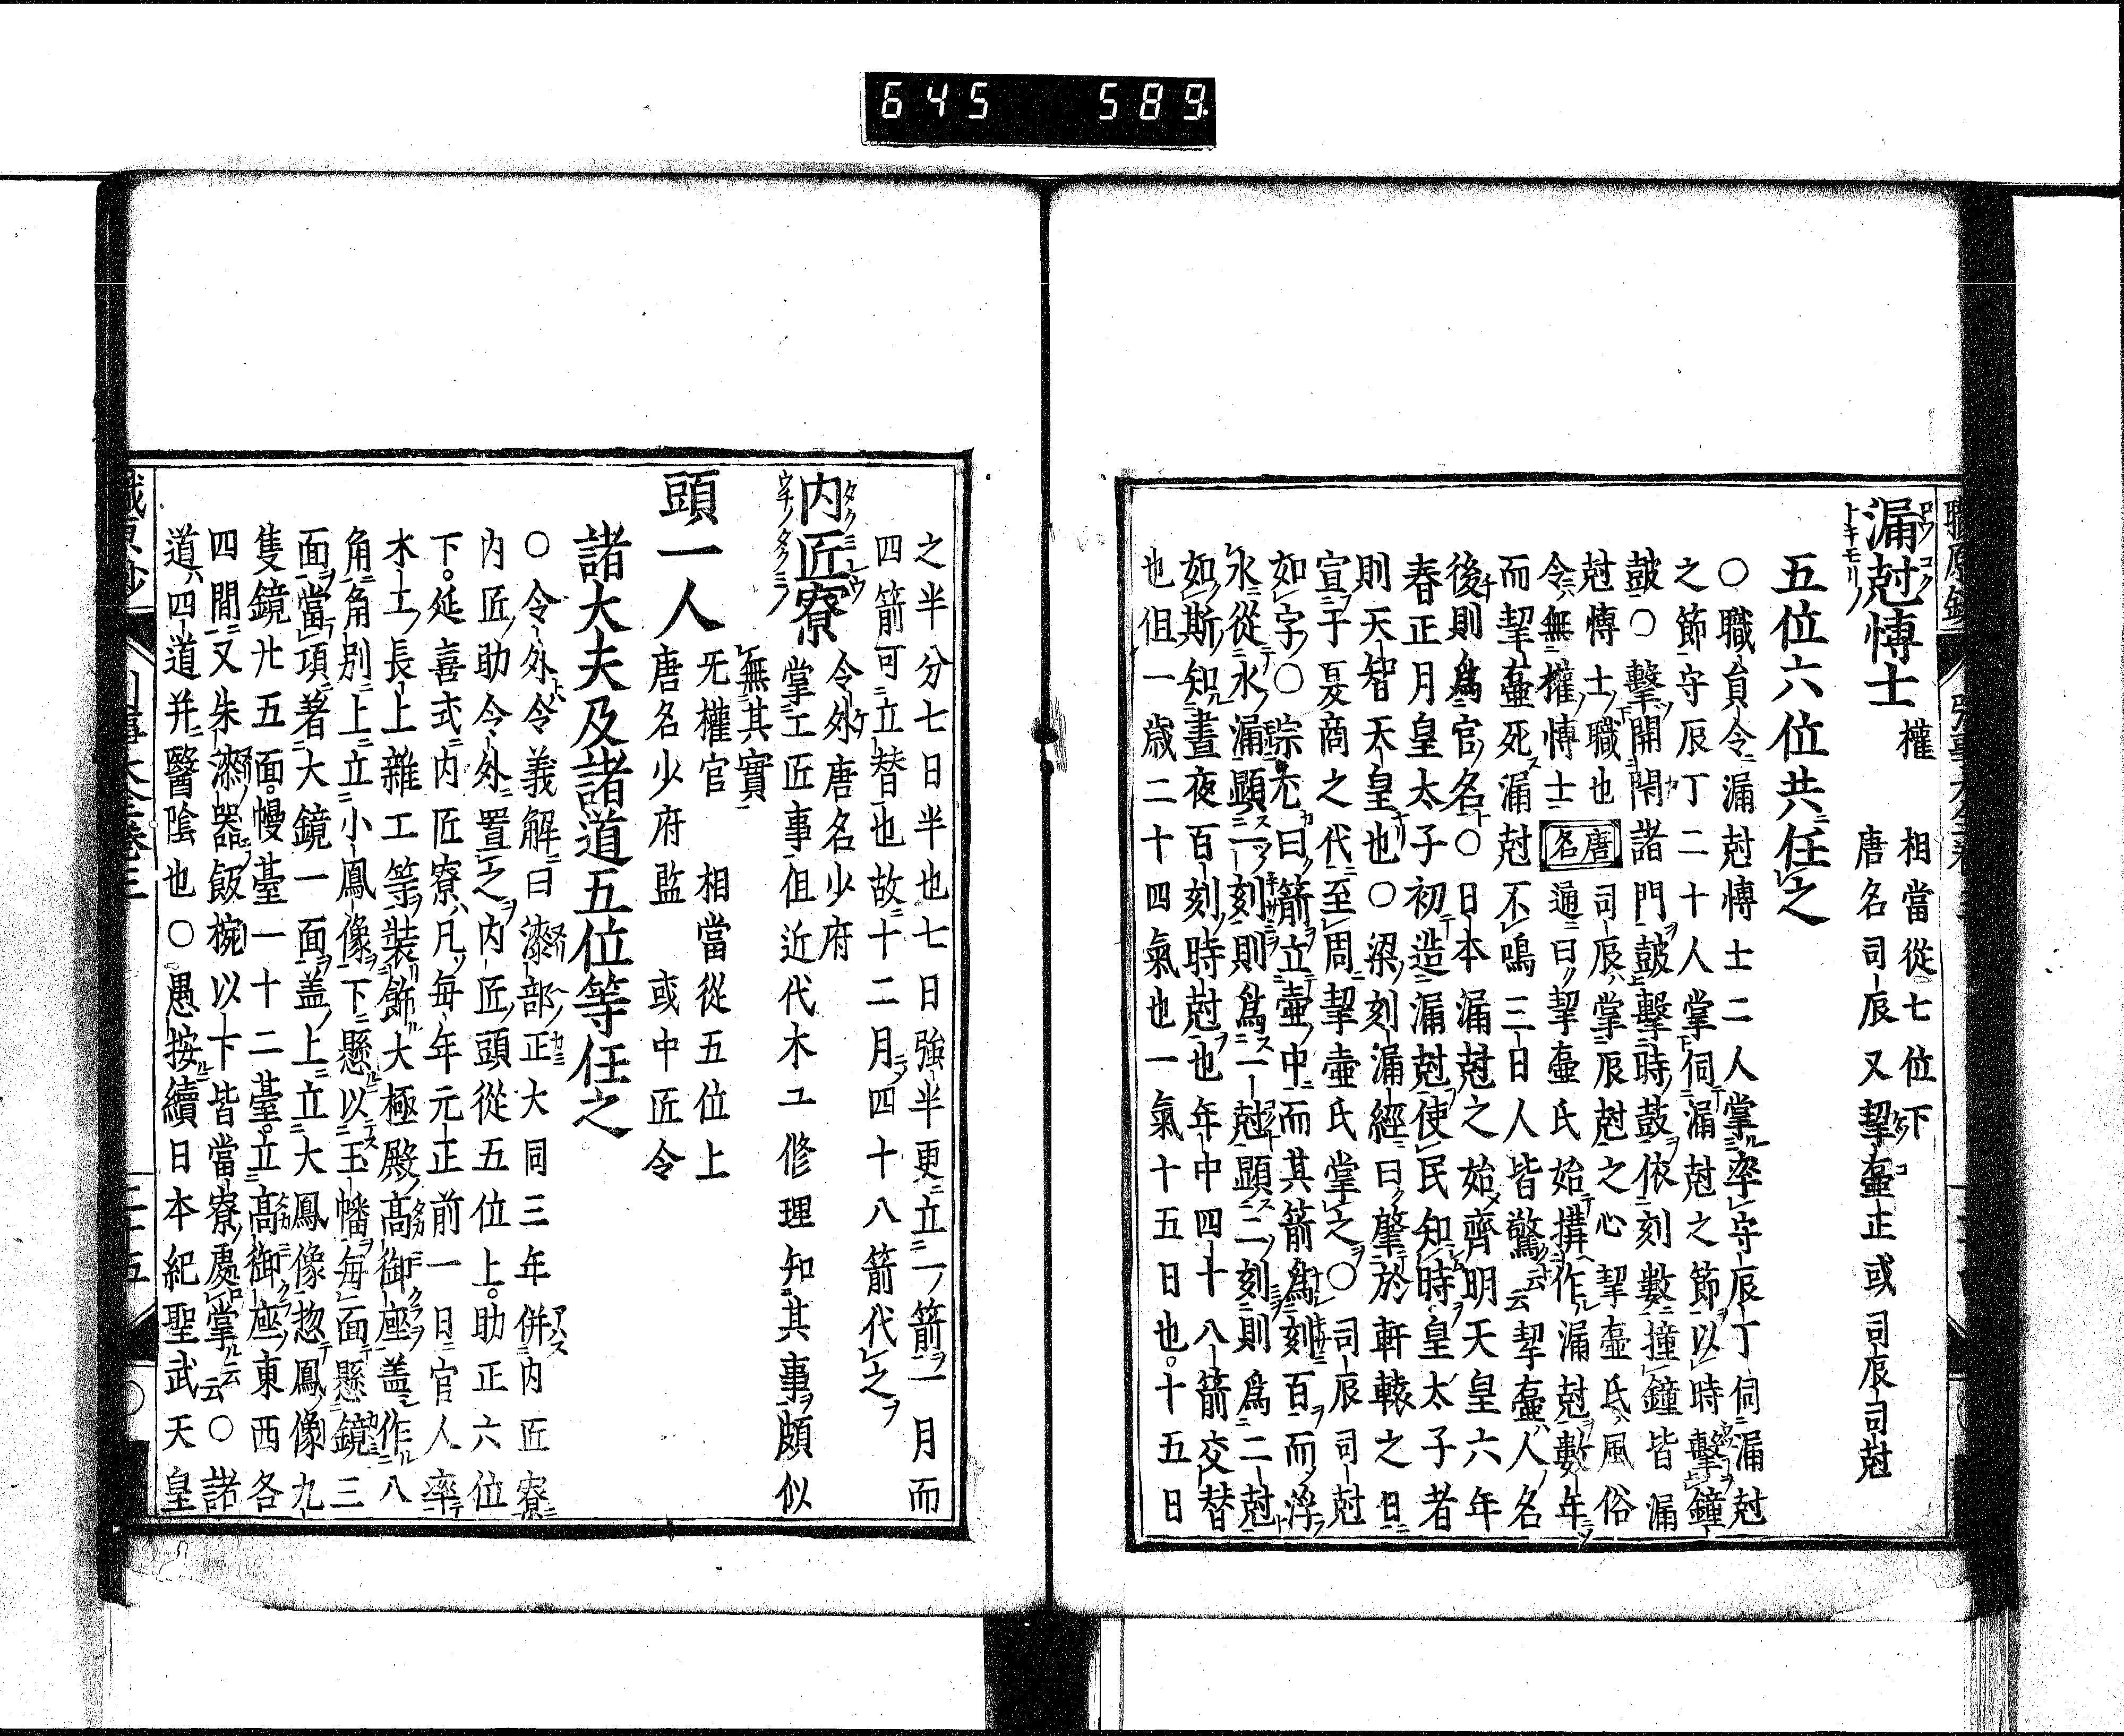 645 589
漏尅博士 權 相當從七位下
唐名司辰又挈壷正或司辰司尅
五位六位共任之
○職員令漏尅博士二人掌率守辰丁伺漏尅
之節守辰丁二十人掌伺漏尅之節以時擊鐘
鼓○擊開閇諸門鼓擊時鼓依刻數撞鐘皆漏
尅博士職也唐名司辰掌辰尅之心挈壷氏風俗
令無權博士 通曰挈壷氏始搆作漏尅數年
而挈壷死漏尅不鳴三日人皆驚云云挈壷人名
後則爲官名○日本漏尅之始齊明天皇六年
春正月皇太子初造漏尅使民知時皇太子者
則天智天皇也○梁刻漏經曰肇於軒轅之日
宣于夏商之代至周挈壷氏掌之○司辰司尅
如字○綜尤曰箭立壷中而其箭爲刻百而浮
水從水漏顯一刻則爲一尅顯二刻則爲二尅
如斯知晝夜百刻時尅也年中四十八箭交替
也但一歲二十四氣也一氣十五日也十五日
之半分七日半也七日強半更立一箭一月而
四箭可立替也故十二月四十八箭代之
内匠寮 令外唐名少府
掌工匠事但近代木工修理知其事頗似
無其實
頭一人 无權官 相當從五位上
唐名少府監 或中匠令
諸大夫及諸道五位等任之
○令外令義解曰漆部正大同三年併内匠寮
内匠助令外置之内匠頭從五位上助正六位
下延喜式内匠寮凡每年元正前一日官人率
木工長上雜工等裝飾大極殿高御座蓋作八
角角別上立小鳳像下懸以玉幡每面懸鏡三
面當項著大鏡一面蓋上立大鳳像惣鳳像九
隻鏡廿五面幔臺一十二臺立高御座東西各
四間又朱漆器飯椀以下皆當寮處掌云云○諸
道四道并醫陰也○愚按續日本紀聖武天皇